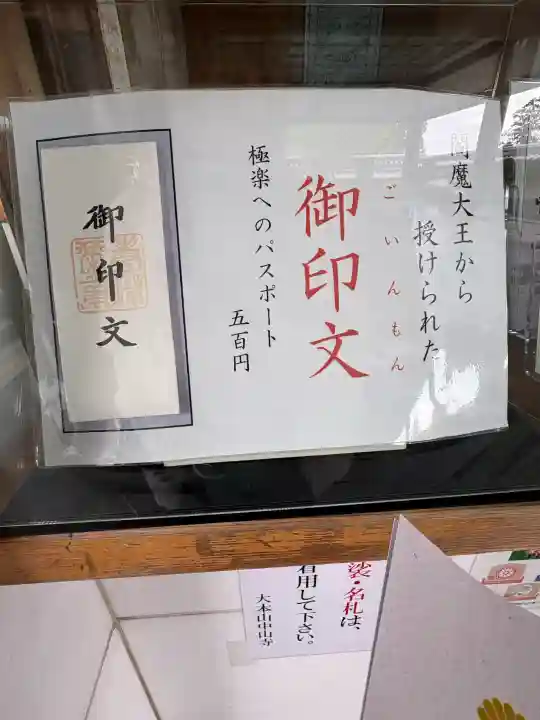 閻魔大王から
授けられた
ごいんもん
御印文
極楽へのパスポート
五百円
御印文
袈裟・名札は、
着用して下さい。
大本山中山寺